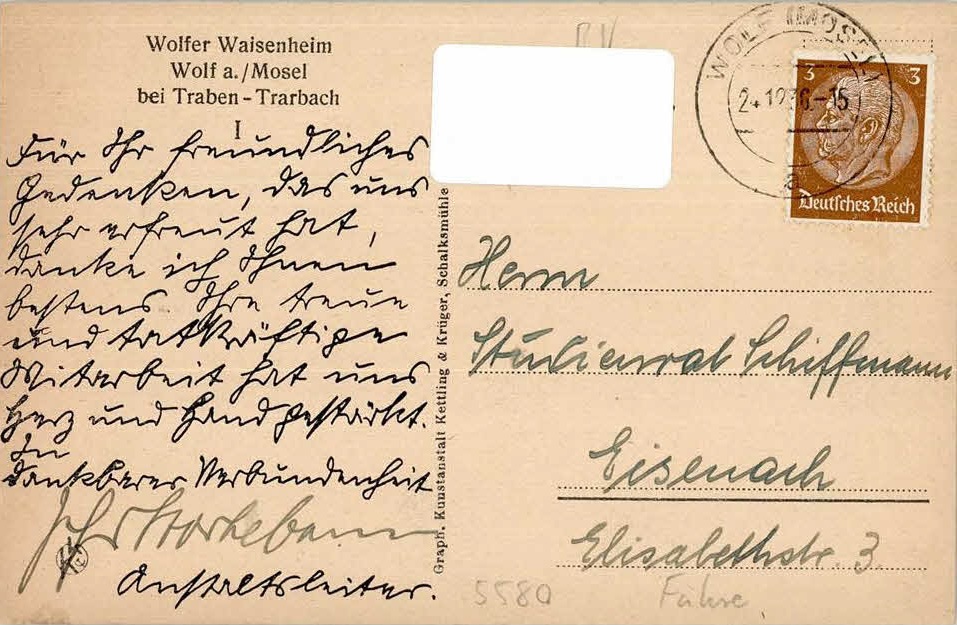 Wolfer Waisenheim
Wolf a./Mosel
bei Traben-Trarbach
I
Für Ihr freundliches
Gedenken, das uns
sehr erfreut hat,
danke ich Ihnen
bestens. Ihre treue
und tatkräftige
Mitarbeit hat uns
Herz und Hand gestärkt.
In
dankbarer Verbundenheit
Ihr
Anstaltsleiter.
Graph. Kunstanstalt Kettling & Krüger, Schalksmühle
WOLF (MOSEL)
24.12.36.-15
a
3 3
Deutsches Reich
Herrn
Studienrat Schiffmann
Eisenach
Elisabethstr. 3.
5580 Führe